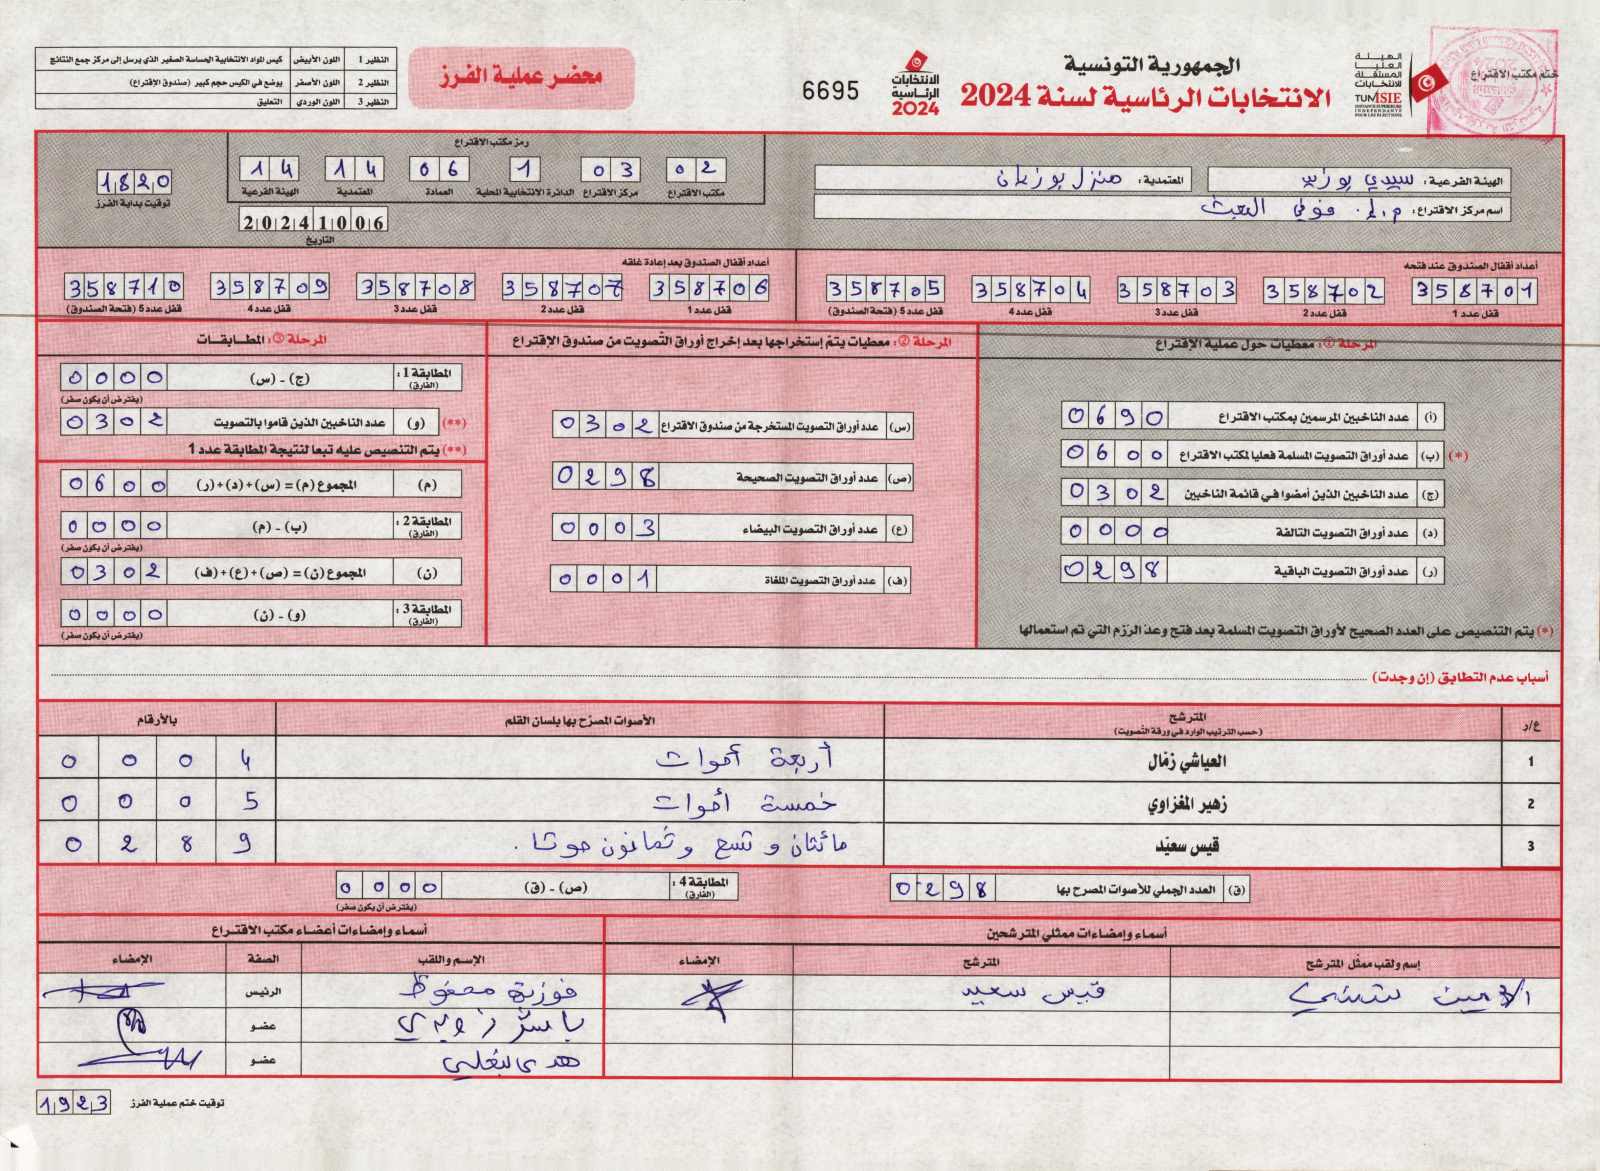 النظير 1 اللون الأبيض كيس المواد الانتخابية الحساسة الصغير الذي يرسل إلى مركز جمع النتائج
النظير 2 اللون الأصفر يوضع في الكيس حجم كبير (صندوق الإقتراع)
النظير 3 اللون الوردي التعليق
محضر عملية الفرز
6695
الانتخابات
الرئاسية
2024
الجمهورية التونسية
الانتخابات الرئاسية لسنة 2024
الهيئة
العليا
المستقلة
للانتخابات
TUNISIE
INSTANCE SUPERIEURE
INDEPENDANTE
POUR LES ELECTIONS
ختم مكتب الاقتراع
الهيئة الفرعية : سيدي بوزيد
المعتمدية : منزل بوزيان
اسم مركز الاقتراع :
رمز مكتب الاقتراع
02 03 1 06 14 14
مكتب الاقتراع مركز الاقتراع الدائرة الانتخابية المحلية العمادة المعتمدية الهيئة الفرعية
20241006
التاريخ
1820
توقيت بداية الفرز
أعداد أقفال الصندوق عند فتحه
358701 358702 358703 358704 358705
قفل عدد 1 قفل عدد 2 قفل عدد 3 قفل عدد 4 قفل عدد 5 (فتحة الصندوق)
أعداد أقفال الصندوق بعد إعادة غلقه
358706 358707 358708 358709 358710
قفل عدد 1 قفل عدد 2 قفل عدد 3 قفل عدد 4 قفل عدد 5 (فتحة الصندوق)
المرحلة ①: معطيات حول عملية الإقتراع
(أ) عدد الناخبين المرسمين بمكتب الاقتراع 0690
(*) (ب) عدد أوراق التصويت المسلمة فعليا لمكتب الاقتراع 0600
(ج) عدد الناخبين الذين أمضوا في قائمة الناخبين 0302
(د) عدد أوراق التصويت التالفة 0000
(ر) عدد أوراق التصويت الباقية 0298
(*) يتم التنصيص على العدد الصحيح لأوراق التصويت المسلمة بعد فتح وعدّ الرّزم التي تم استعمالها
المرحلة ②: معطيات يتمّ إستخراجها بعد إخراج أوراق التّصويت من صندوق الإقتراع
(س) عدد أوراق التصويت المستخرجة من صندوق الاقتراع 0302
(ص) عدد أوراق التصويت الصحيحة 0298
(ع) عدد أوراق التصويت البيضاء 0003
(ف) عدد أوراق التصويت الملغاة 0001
المرحلة ③: المطـابـقات
المطابقة 1 : (الفارق) (ج) - (س) 0000
(يفترض أن يكون صفر)
(**) (و) عدد الناخبين الذين قاموا بالتصويت 0302
(**) يتم التنصيص عليه تبعا لنتيجة المطابقة عدد 1
(م) المجموع (م) = (س)+(د)+(ر) 0600
المطابقة 2 : (الفارق) (ب) - (م) 0000
(يفترض أن يكون صفر)
(ن) المجموع (ن) = (ص)+(ع)+(ف) 0302
المطابقة 3 : (الفارق) (و) - (ن) 0000
(يفترض أن يكون صفر)
أسباب عدم التطابق (إن وجدت)
ع/ر المترشح الأصوات المصرّح بها بلسان القلم بالأرقام
(حسب الترتيب الوارد في ورقة التصويت)
1 العياشي زمّال أربعة أصوات 0004
2 زهير المغزاوي خمسة أصوات 0005
3 قيس سعيّد مائتان وتسع وثمانون صوتا. 0289
(ق) العدد الجملي للأصوات المصرح بها 0298
المطابقة 4 : (الفارق) (ص) - (ق) 0000
(يفترض أن يكون صفر)
أسماء وإمضاءات ممثلي المترشحين
إسم ولقب ممثّل المترشح المترشح الإمضاء
قيس سعيد
أسماء وإمضاءات أعضاء مكتب الاقتراع
الإسم واللقب الصفة الإمضاء
فوزية محفوظ الرئيس
عضو
عضو
توقيت ختم عملية الفرز 1923